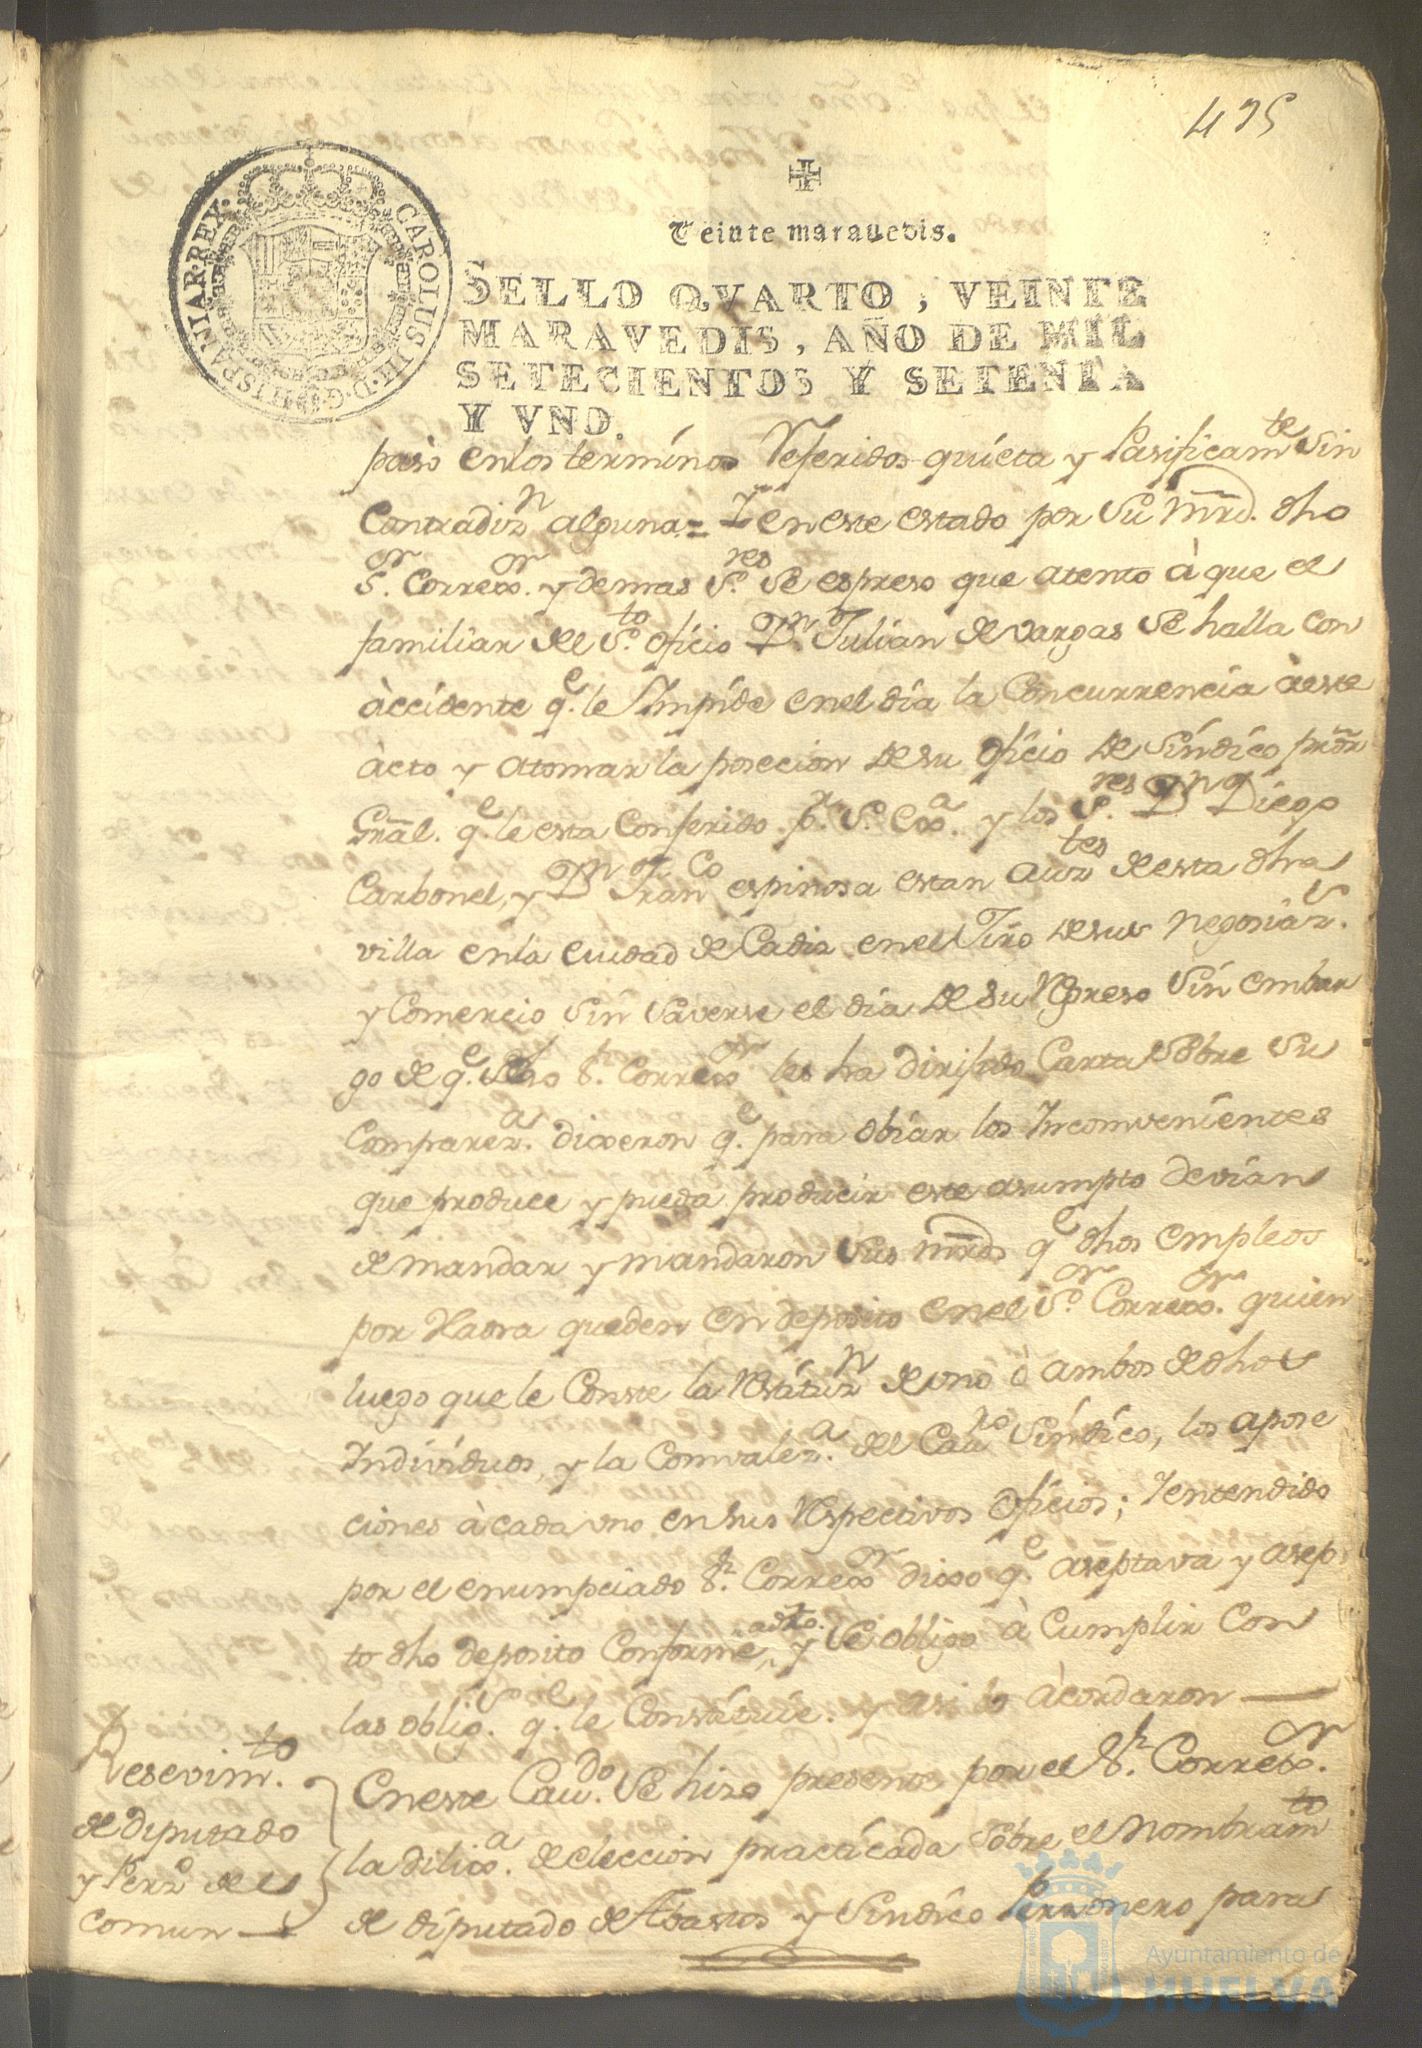 475
Veinte marauedis.
SELLO QVARTO, VEINTE
MARAVEDIS, AÑO DE MIL
SETECIENTOS Y SETENTA
Y VNO.
CAROLUS III. D. G. HISPANIAR. REX.
paso en los terminos Referidos quieta y Pasificamte sin
Contradizn alguna = Y en este estado por su mrd. dho
Sr. Correxor. y demas Sres. se espreso que atento à que el
familiar del Sto. oficio Dn. Julian de Vargas se halla con
àccidente qe. le Impide en el dia la Concurrencia à este
àcto y atomar la posecion de su oficio de Síndico prõr
Gñal. qe. le esta Conferido pr. S. Exa. y los Sres. Dn Diego
Carbonel, y Dn Franco espinosa estan auztes de esta dha
villa en la ciudad de Cadiz en el Jiro de sus negosiazs.
y Comercio sin saverse el dia de su Regreso sin embar
go de qe. dho Sr. Correxor les ha dirijido Carta sobre su
Compareza. dixeron qe. para obiar los Incomvenientes
que produce y pueda producir este asumpto devian
de mandar y mandaron sus mrds qe dhos empleos
por Haora queden en deposito en el Sor. Correxor. quien
luego que le Conste la Restituzn de uno ò ambos de dhos
Individuos, y la Comvaleza. del Cauo Síndico, los apose
ciones à cada uno en sus Respectivos Oficios; Y entendido
por el enumpciado Sr. Correxor dixo qe. aseptava y asep
to dho deposito Conforme adto. y se obligo à Cumplir Con
las obligs. qe. le Constituie. y asi lo àcordaron —
Resevimto.
de diputado
y Perzo del
comun —
En este Caudo. se hizo presente por el Sr. Correxor.
la dilixa. de eleccion practicada sobre el nombramto
de diputado de Abastos y Síndico Perzonero para
Ayuntamiento de
HUELVA